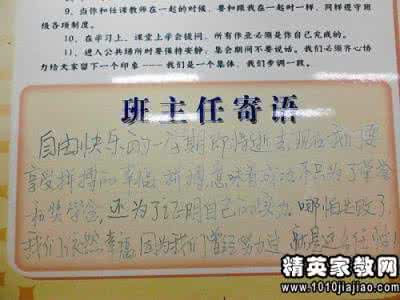 9、当你和任课教师在一起的时候,要和跟我在一起时一样,同样遵守班
级各项制度。
10、在学习上,课堂上学会提问,所有作业必须是你自己完成的。
11、进入公共场所时要保持安静;集会期间不要说话。我们必须齐心协
力给大家留下一个印象——我们是一个集体,我们步调一致。
班主任寄语
自由快乐的一星期即将逝去现在我们要
享受拼搏的幸福 拼搏意味着成功不只为了荣誉
和奖学金,还为了证明自己的实力.哪怕失败了,
我们依然幸福,因为我们曾经努力过,
精英家教网
www.1010jiajiao.com